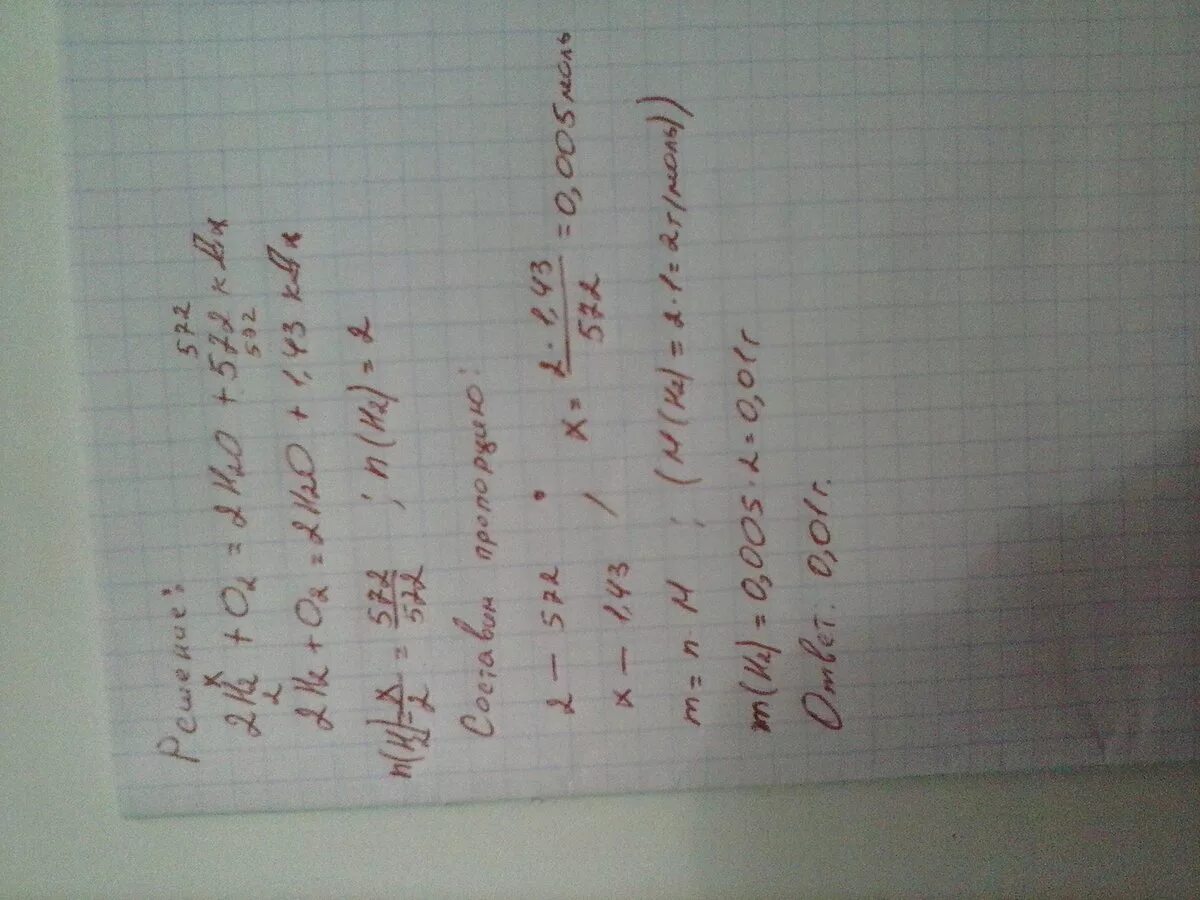 Решение:
x 572
2H₂ + O₂ = 2H₂O + 572 кДж
2 572
2H₂ + O₂ = 2H₂O + 1,43 кДж
n(H₂) = x/2 = 572/572 ; n(H₂) = 2
Составим пропорцию:
2 — 572
x — 1,43 / x = 2·1,43/572 = 0,005 моль
m = n·M ; (M(H₂) = 2·1 = 2г/моль))
m(H₂) = 0,005·2 = 0,01г
Ответ. 0,01г.